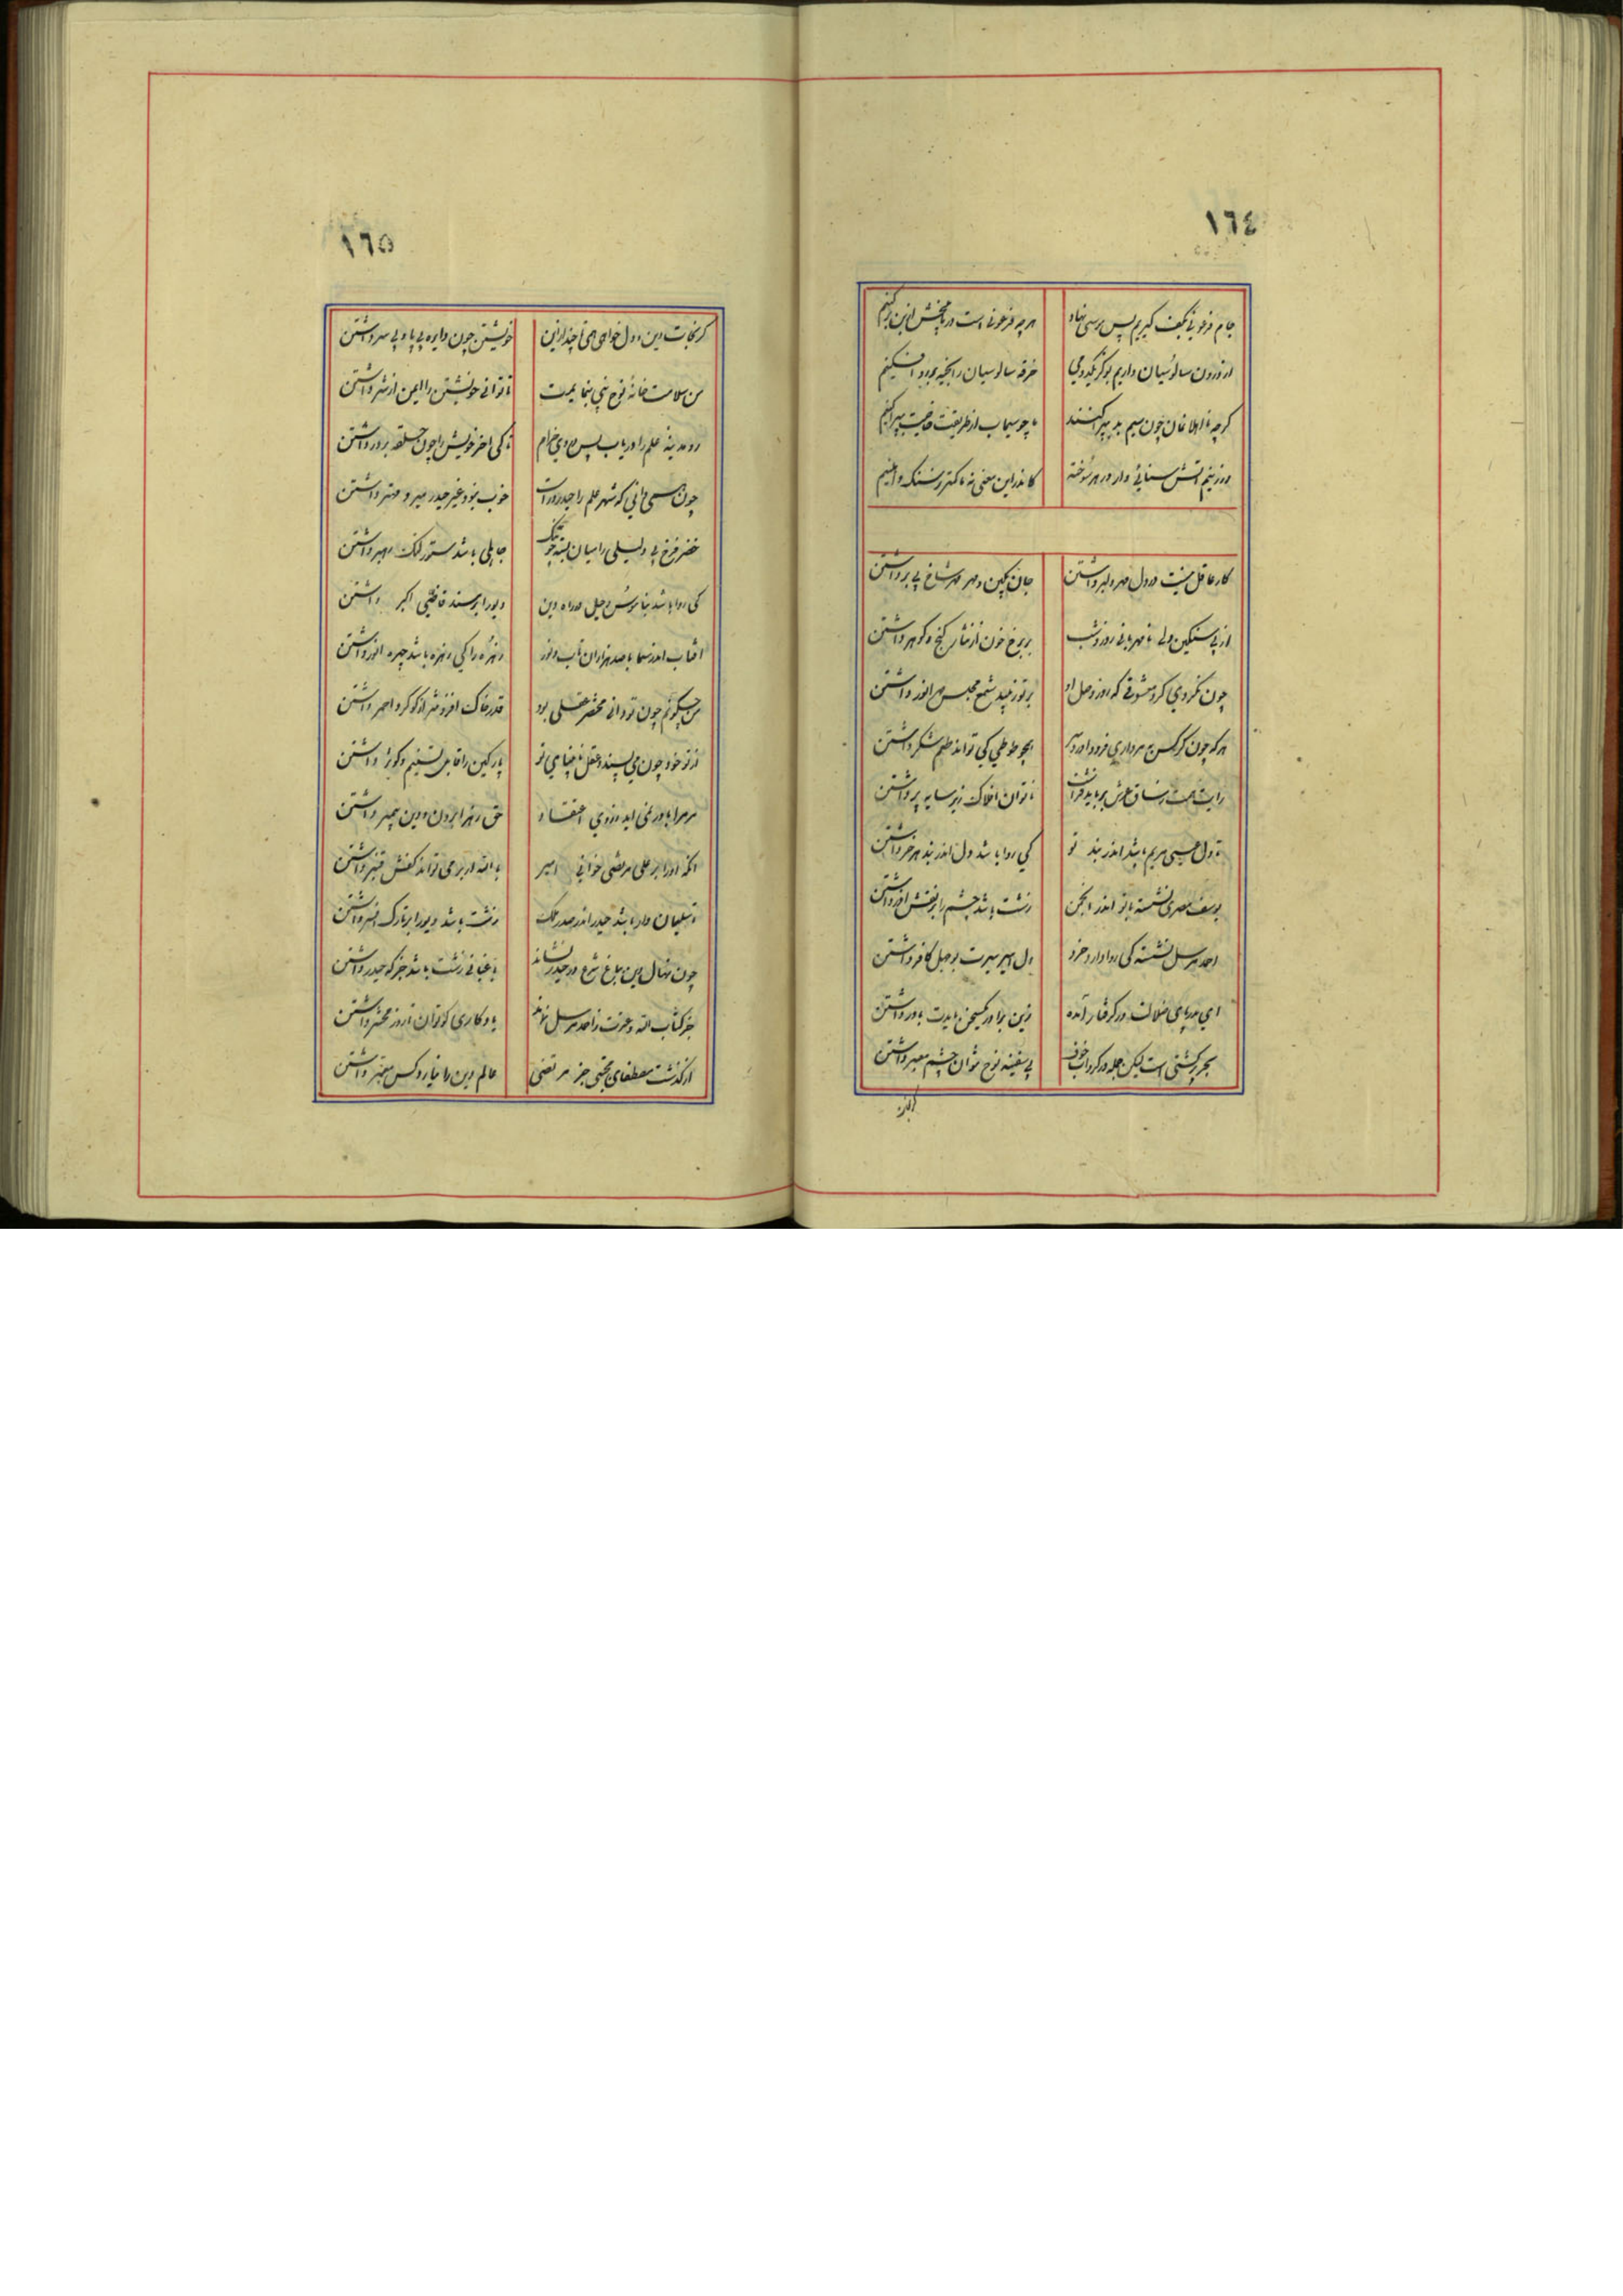 ١٦٤
جام فرعونی بکف گیریم پس موسی نهاد
هر چه فرعونی است در ما بخش از بن برکنیم
از درون سالوسیان داریم بو کز یکدمی
خرقه سالوسیان را بخیه بر رو افکنیم
گرچه ناهلا غان چون سیم بد پیر کنند
ما چو سیماب از طریقت خاصیت پیدا کنیم
ور نه بینم آتش سنائی وار در هر سوخته
کاندر این معنی نه ما کمتر ز سنگ و آهنیم
کار عاقل نیست در دل مهر دلبر داشتن
جان نگین و مهر مهر شاخ بی بر داشتن
از پی سنگین دلی نامهربانی روز و شب
بر رخ چون زر نثار گنج و گوهر داشتن
چون نگردی گرد معشوقی که روز وصل او
بر تو زیبد شمع مجلس مهر انور داشتن
هر که چون کرکس بمرداری فرود آورد سر
همچو طوطی کی تواند طعم شکر داشتن
رایت همت ز ساق عرش بر باید فراشت
تا توان افلاک زیر سایه پر داشتن
تا دل عیسی مریم باشد اندر بند تو
کی روا باشد دل اندر بند هر خر داشتن
یوسف مصری نشسته با تو اندر انجمن
زشت باشد چشم را بر نقش آزر داشتن
احمد مرسل نشسته کی روا دارد خرد
دل اسیر سیرت بوجهل کافر داشتن
ای بدریای ضلالت در گرفتار آمده
زین برادر یکسخن بایدت باور داشتن
بحر پر کشتی است لیکن جمله در گرداب خوف
بی سفینه نوح نتوان چشم معبر داشتن
گر نجات
١٦٥
گر نجات دین و دل خواهی همی تا چند ازین
خویشتن چون دایره بی پا و بی سر داشتن
من سلامت خانه نوح نبی بنمایمت
تا توانی خویشتن را ایمن از شر داشتن
رو مدینه علم را دریاب پس در وی خرام
تا کی آخر خویش را چون حلقه بر در داشتن
چون همی دانی که شهر علم را حیدر در است
خوب نبود غیر حیدر میر و مهتر داشتن
خضر فرخ پی دلیلی را میان بسته چو تنک
جاهلی باشد ستور لنگ رهبر داشتن
کی روا باشد بناموس و حیل در راه دین
دیو را بر مسند قاضی اکبر داشتن
آفتاب اندر سما با صد هزاران تاب و نور
زهره را کی زهره باشد چهره انور داشتن
من چگویم چون تو دانی مختصر عقلی بود
قدر خاک افزون تر از گوگرد احمر داشتن
از تو خود چون می پسندد عقل نابینای تو
پارگین را قابل تسنیم و کوثر داشتن
مر مرا باور نمی آید ز روی اعتقاد
حق زهرا بردن و دین پیمبر داشتن
آنکه او را بر علی مرتضی خوانی امیر
بالله ار بر می تواند کفش قنبر داشتن
تا سلیمان وار باشد حیدر اندر صدر ملک
زشت باشد دیو را بر تارک افسر داشتن
چون نهال دین بباغ شرع در حیدر نشاند
باغبانی زشت باشد جز که حیدر داشتن
جز کتاب الله و عترت ز احمد مرسل نماند
یادگاری کو توان تا روز محشر داشتن
از گذشت مصطفای مجتبی جز مرتضی
عالم دین را نیارد کس معمر داشتن